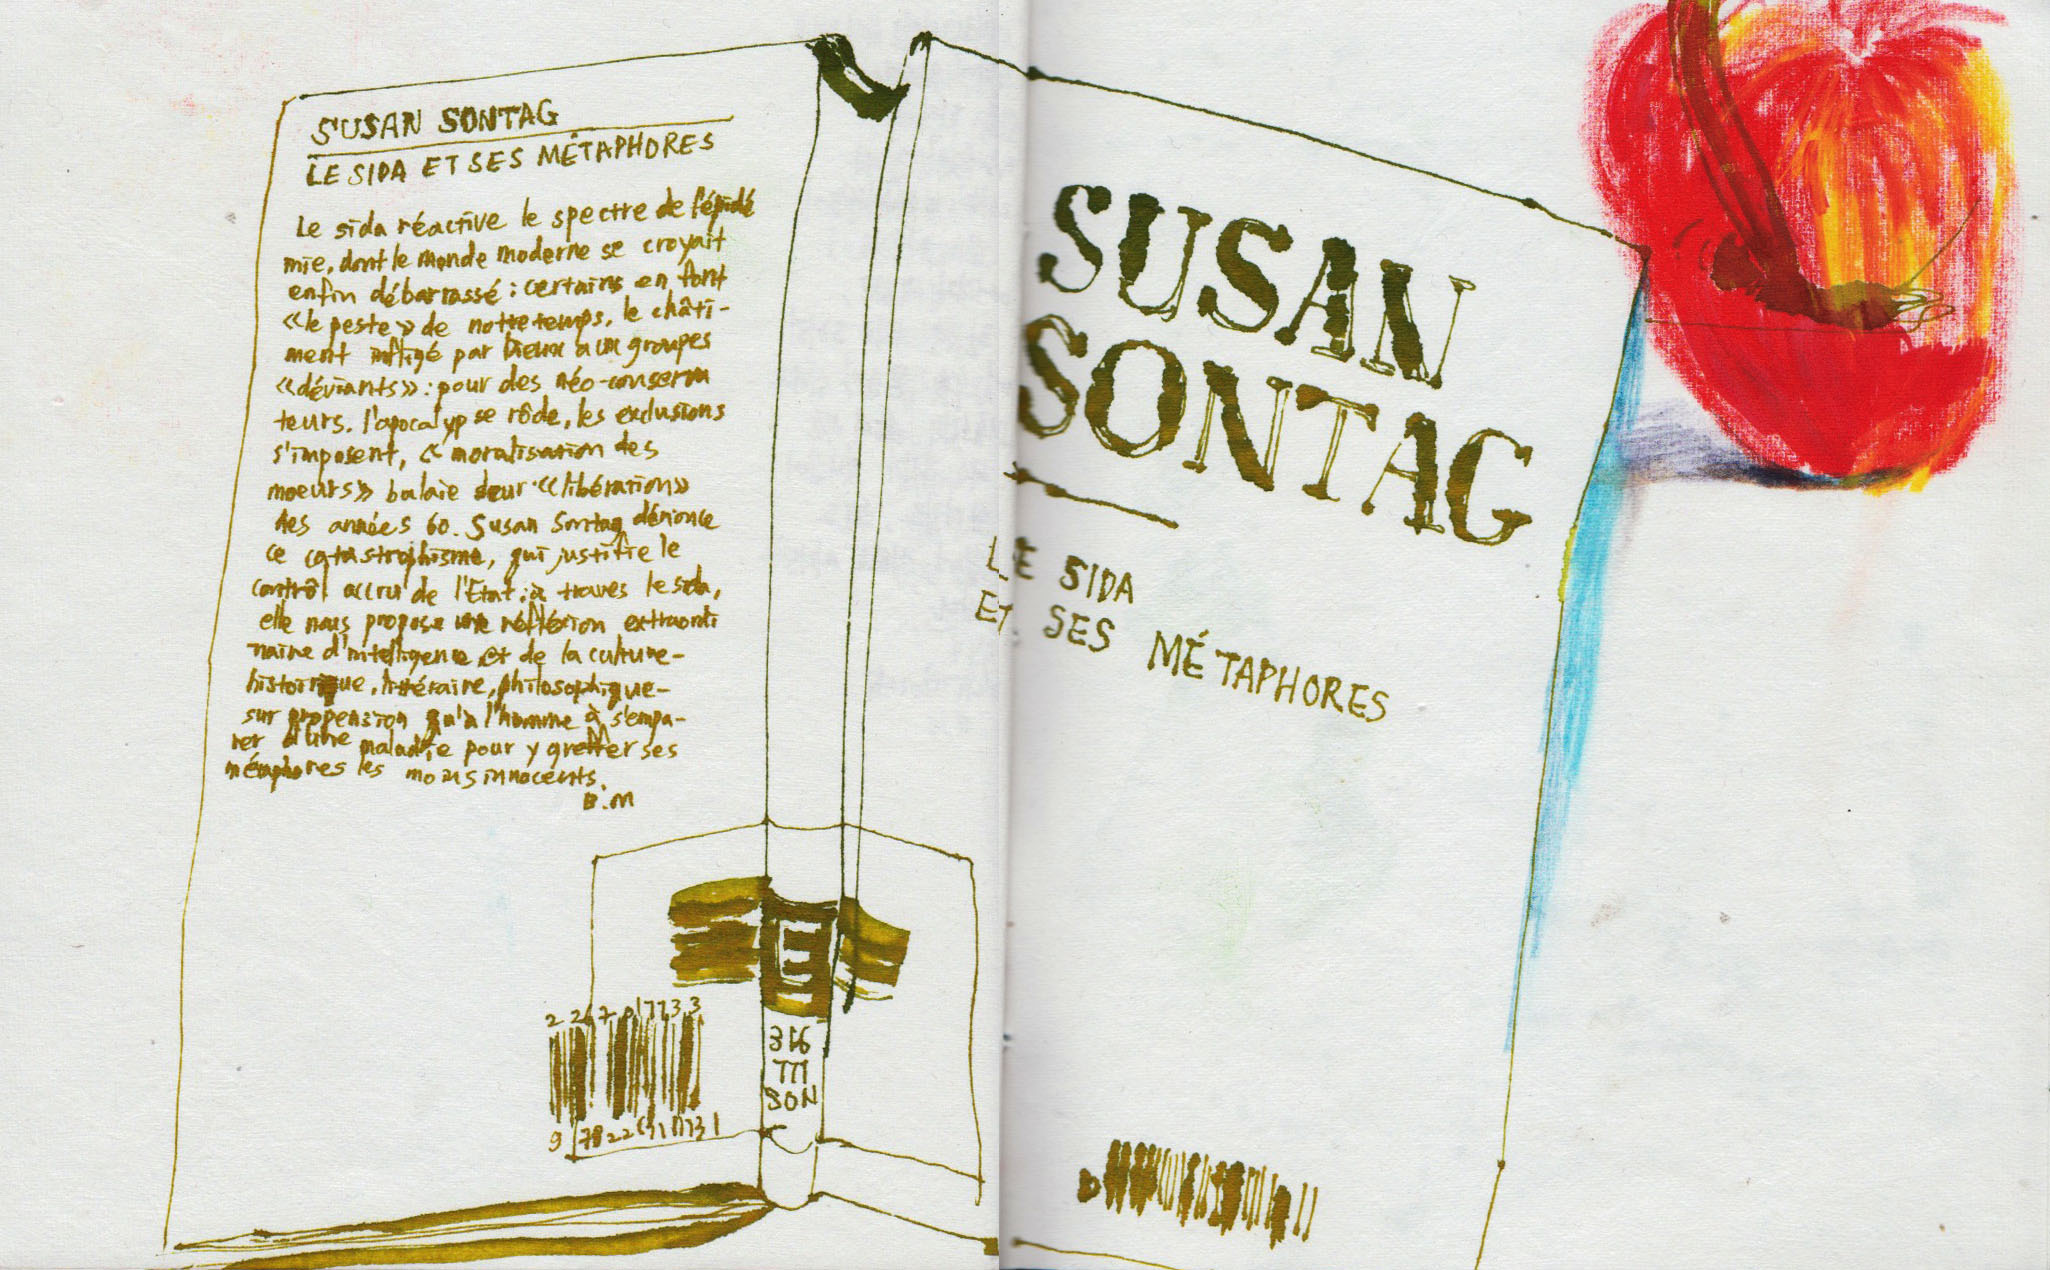 SUSAN SONTAG
LE SIDA ET SES MÉTAPHORES
Le sida réactive le spectre de l'épidé
mie, dont le monde moderne se croyait
enfin débarrassé : certains en font
«le peste» de notre temps, le châti-
ment infligé par Dieux aux groupes
«déviants» : pour des néo-conserva
teurs. l'apocalypse rôde, les exclusions
s'imposent, moralisation des
moeurs» balaie «libération»
des années 60. Susan Sontag dénonce
ce catastrophisme, qui justifie le
contrôl accru de l'Etat : à travers le sida,
elle nous propose une réfléxion extraordi
naire d'intelligence et de la culture-
historique, littéraire, philosophique-
sur propension qu'a l'homme à s'empa-
rer d'une maladie pour y greffer ses
métaphores les moins innocents.
B.M
316
TTT
SON
SUSAN
SONTAG
LE SIDA
ET SES MÉTAPHORES